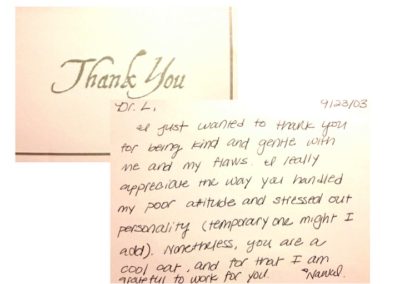 Thank You
Dr. L. 9/23/03
I just wanted to thank you
for being kind and gentle with
me and my flaws. I really
appreciate the way you handled
my poor attitude and stressed out
personality (temporary one might I
add). Nonetheless, you are a
cool cat, and for that I am
grateful to work for you.